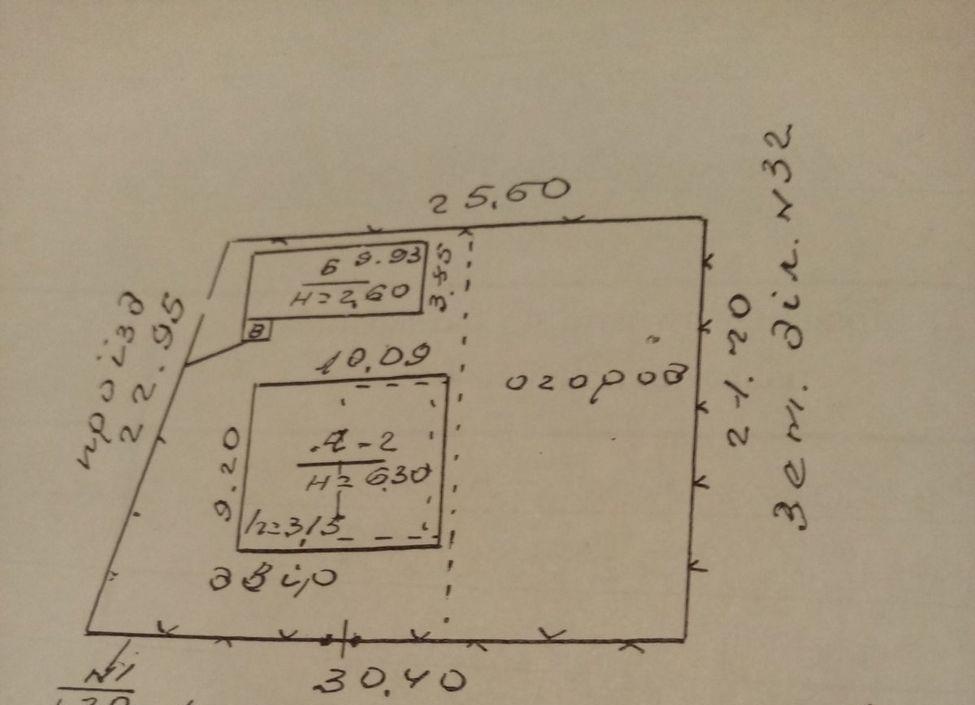 25.60
Б 9.93
H=2,60
3.55
В
проїзд
22.95
10,09
город
21.20
Зем. діл. N32
9.20
А-2
H=6.30
h=3,15
двір
30.40
N1